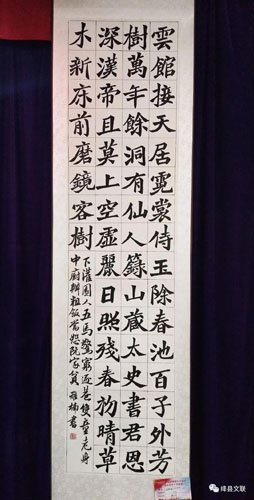 雲館接天居霓裳侍玉除春池百子外芳
樹萬年餘洞有仙人籙山藏太史書君恩
深漢帝且莫上空虛麗日照殘春初晴草
木新床前磨鏡客樹
下灌園人五馬驚窮巷雙童老身
中厨辦粗飯當恕阮家貧 雅楠書
绛县文联